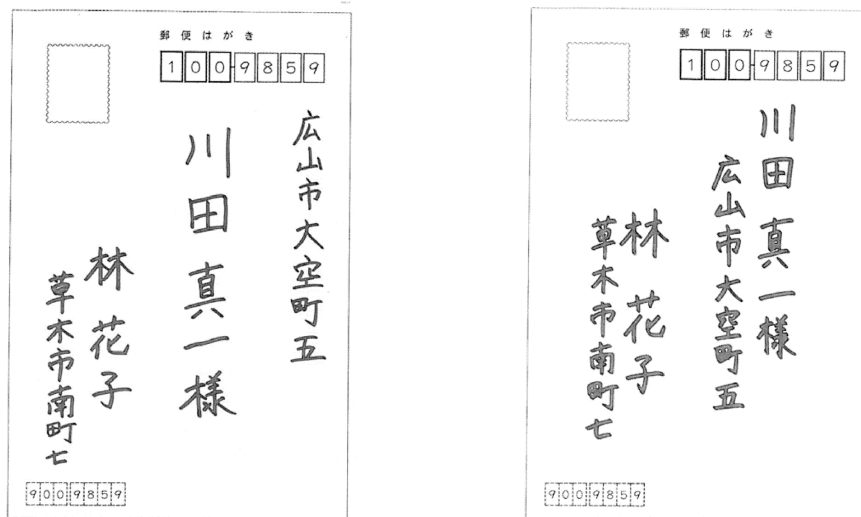 郵便はがき
100-9859
広山市大空町五
川田真一様
林花子
草木市南町七
900 9859
郵便はがき
100-9859
川田真一様
広山市大空町五
林花子
草木市南町七
900 9859